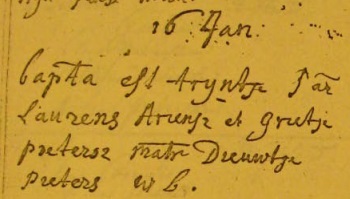 16 Jan
bapta est tryntje Par
Laurens Ariensz et grietje
pietersz matr Dieuwtje
pieters w b.